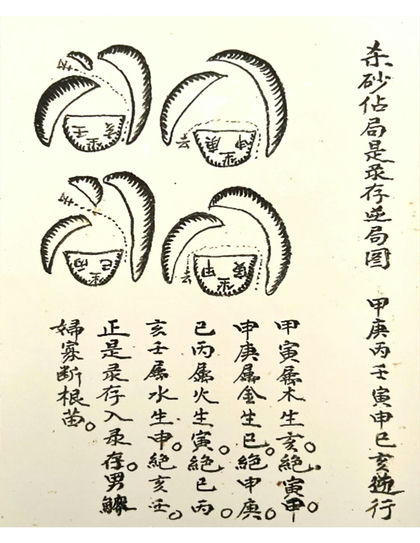 杀砂佔局是录存逆局图
甲庚丙壬寅申巳亥逆行
甲寅属木生亥。绝寅甲。
申庚属金生巳。绝申庚。
巳丙属火生寅。绝巳丙。
亥壬属水生申。绝亥壬。
正是录存入录存。男鳏
婦寡断根苗。